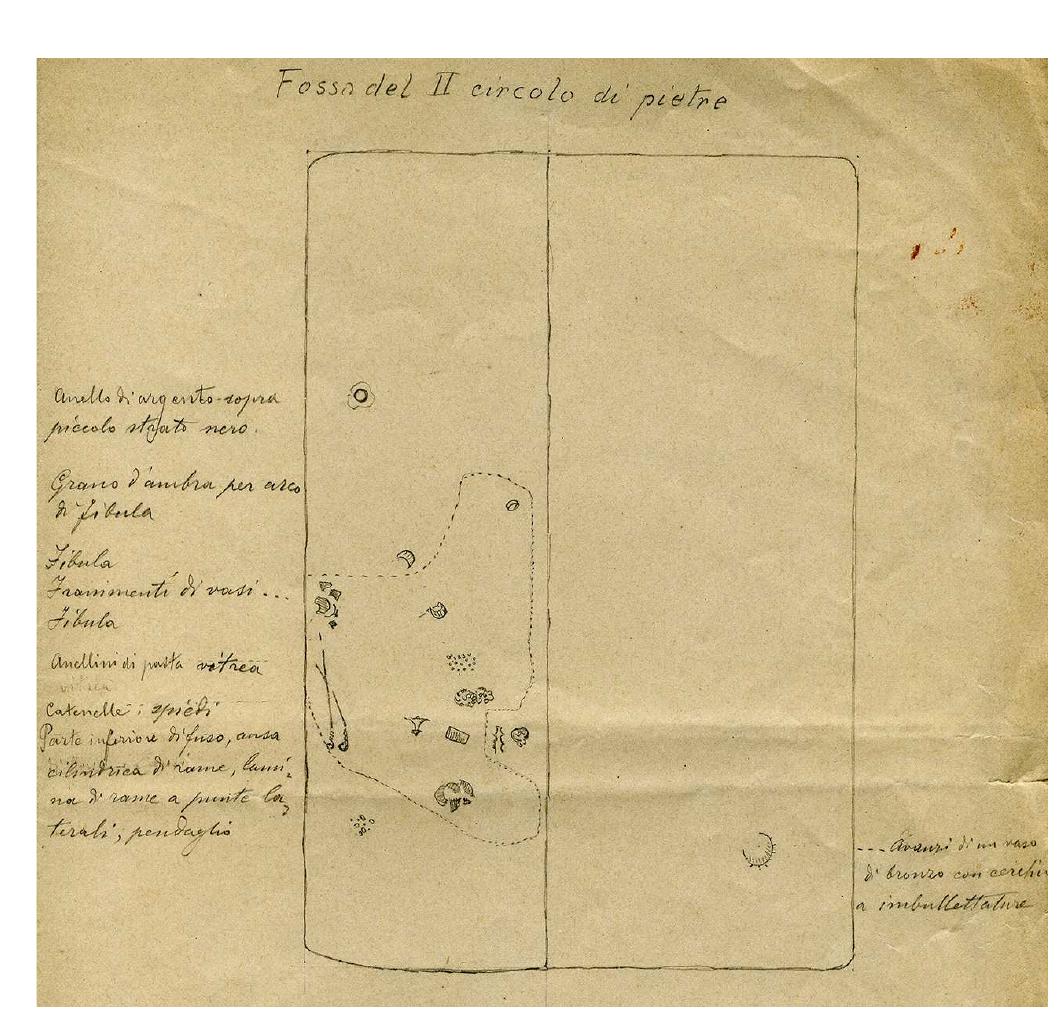 Fossa del II circolo di pietre
Anello di argento sopra
piccolo strato nero.
Grano d'ambra per arco
di fibula
Fibula
Frammenti di vasi ...
Fibula
Anellini di pasta vitrea
vitrea
Catenelle: spiedi
Parte inferiore di fuso, ansa
cilindrica di rame, lami-
na di rame a punte la-
terali, pendaglio
--- Avanzi di un vaso
di bronzo con cerchi
a imbullettature